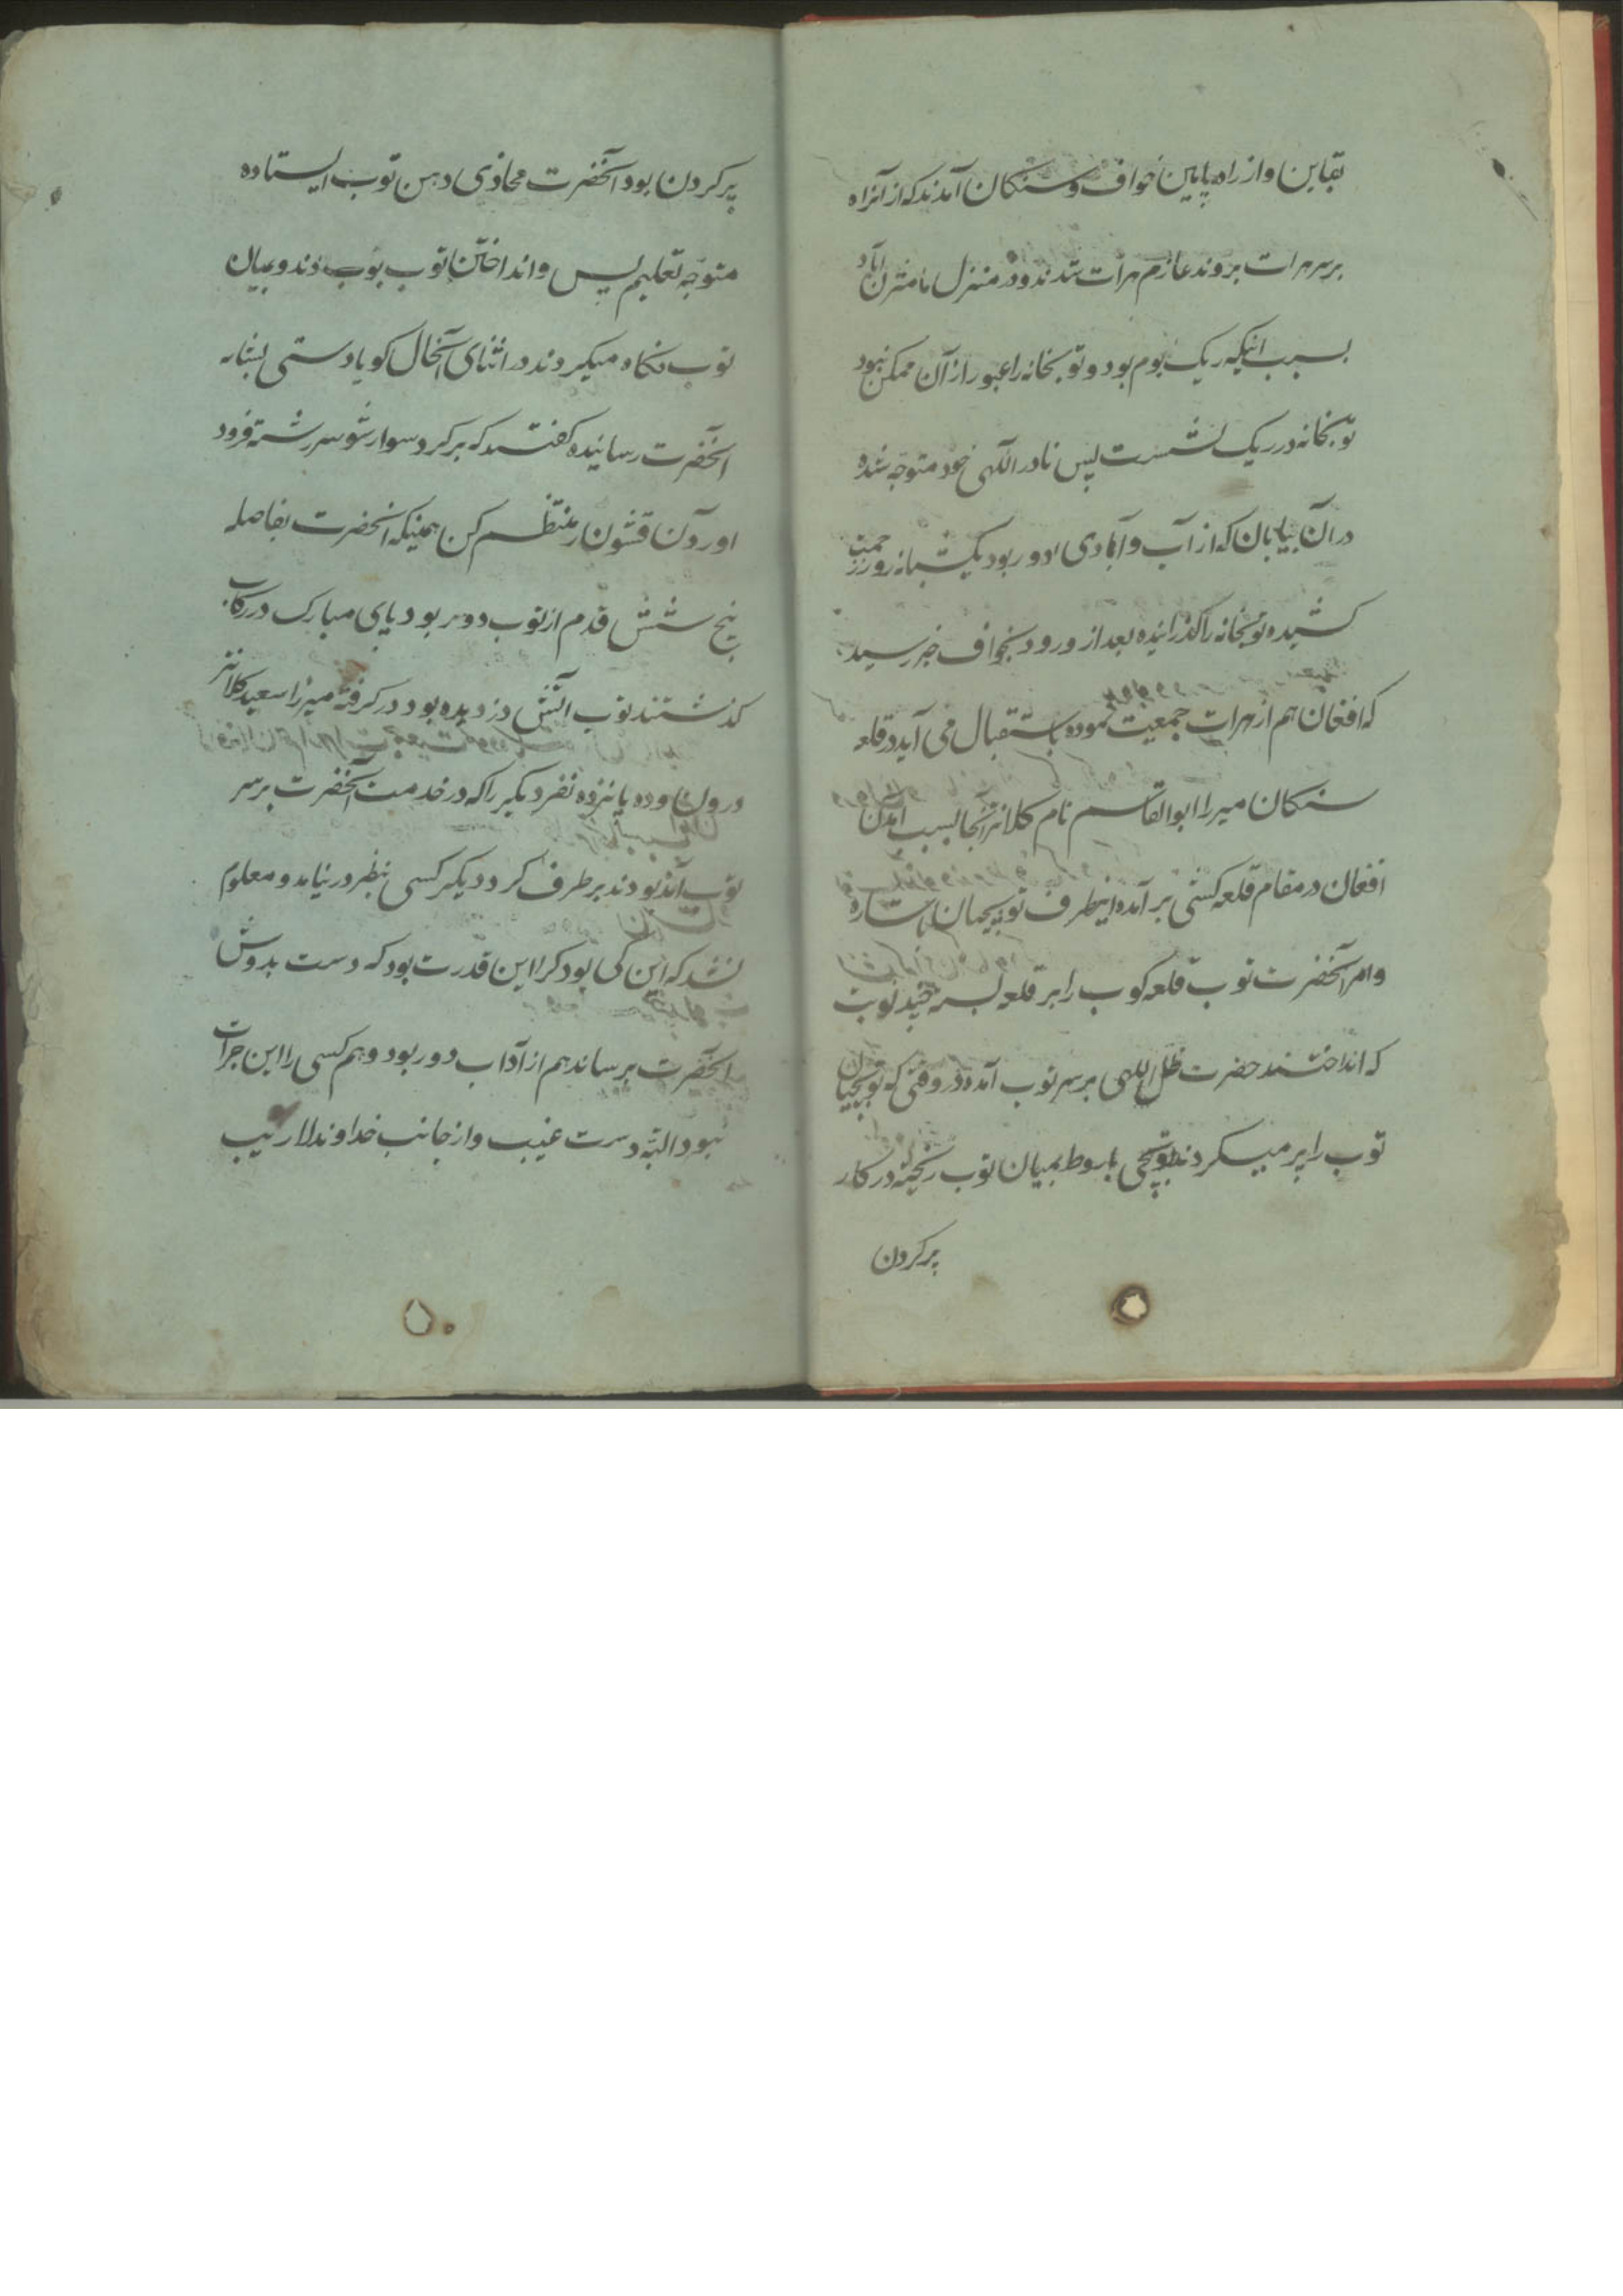 بقاین و از راه پایین خواف و سنکان آمدند که از آنراه
بر سر هرات بروند عازم هرات شدند و در منزل آباد
بسبب اینکه ریک بوم بود و توبخانه را عبور از آن ممکن نبود
توبخانه در ریک نشست پس نادر اللهی خود متوجه شده
در آن بیابان که از آب و آبادی دور بود یکشبانه روز زحمت
کشیده توبخانه را کذرانیده بعد از ورود بخواف خبر رسید
که افغان هم از هرات جمعیت نموده باستقبال می آید در قلعه
سنکان میرزا ابوالقاسم نام کلانتر آنجا بسبب آمدن
افغان در مقام قلعه کشی بر آمده اینطرف توبچیان باشاره
و امر آنحضرت توب قلعه کوب را بر قلعه بسته چند توب
که انداختند حضرت ظل اللهی بر سر توب آمده در وقتی که توبچیان
توب را پر میکردند توپچی باروط بمیان توب ریخته در کار
پر کردن
پر کردن بود آنحضرت محاذی دهن توب ایستاده
متوجه تعلیم و انداختن توب بودند و بمیان
توب نکاه میکردند در اثنای آنحال کویا دستی بشانه
آنحضرت رسانیده کفتند که برکرد سوار شو سر رشته فرود
اوردن قشون را منتظم کن همینکه آنحضرت بفاصله
پنج شش قدم از توب دور بود پای مبارک در رکاب
کذاشتند توب آتش دزدیده بود در کرفته میرزا سعید کلانتر
درون و ده پانزده نفر دیکر را که در خدمت آنحضرت بر سر
توب آمده بودند بر طرف کرد دیکر کسی بنظر در نیامد و معلوم
نشد که این کی بود کرا این قدرت بود که دست بدوش
آنحضرت برساند هم از آداب دور بود و هم کسی را این جرات
نبود البته دست غیب و از جانب خداوند لاریب